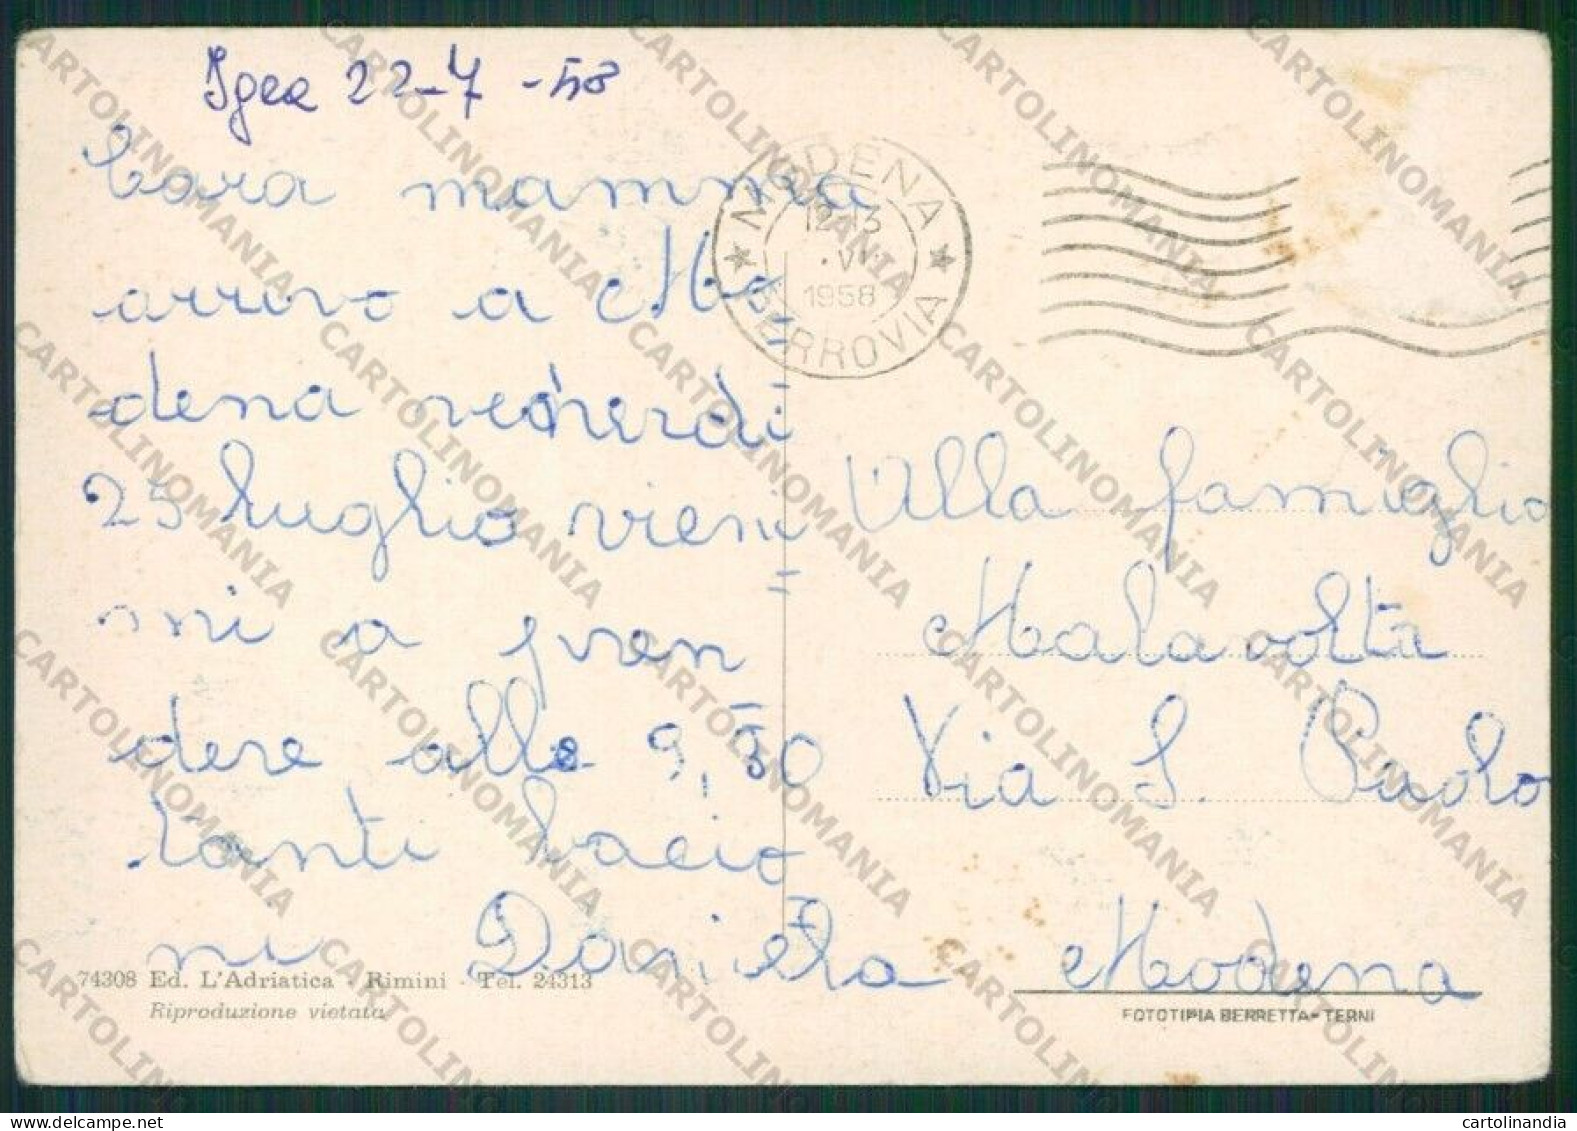 Igea 22-7-58
Cara mamma
arrivo a Mo=
dena venerdì
25 luglio vieni=
mi a pren=
dere alle 9,30
Tanti bacio=
ni Daniela
MODENA
12-13
.VI.
1958
FERROVIA
Alla famiglia
Malavolta
Via S. Paolo
Modena
74308 Ed. L'Adriatica - Rimini - Tel. 24313
Riproduzione vietata
FOTOTIPIA BERRETTA - TERNI
CARTOLINOMANIA
cartolinandia